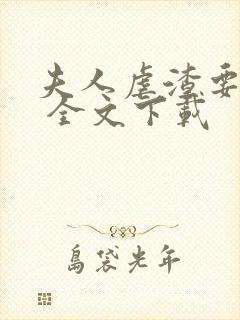 夫人虐渣要
全文下载
岛袋光年